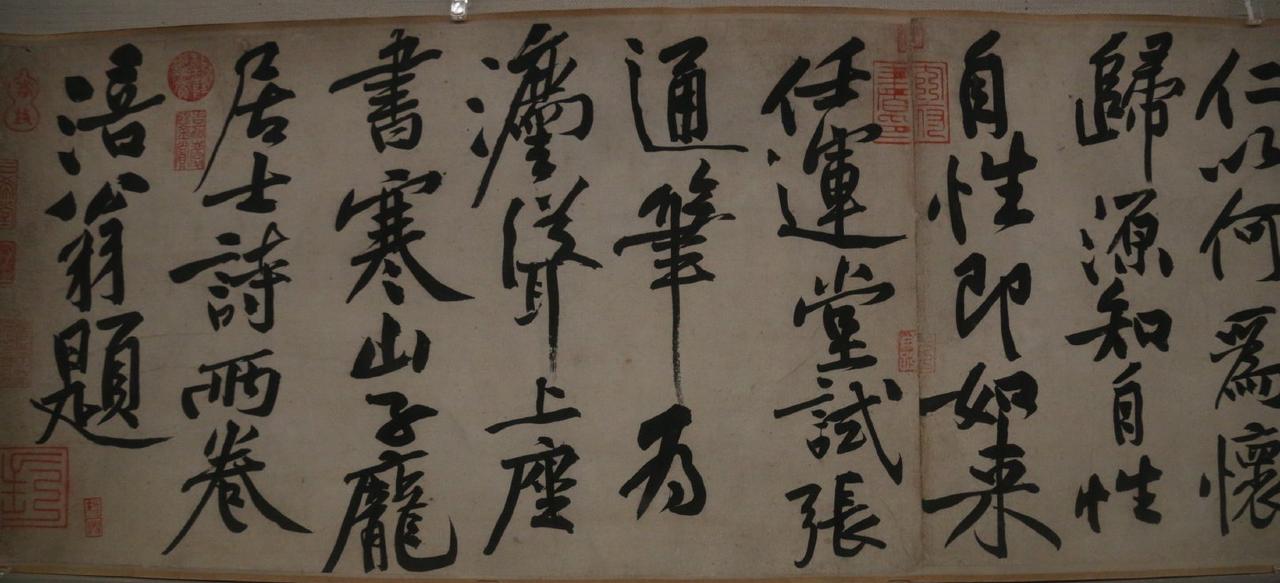 仁以何為懷
歸源知自性
自性即如来
任運堂試張
通筆為
法聳上座
書寒山子龐
居士詩兩卷
涪翁題